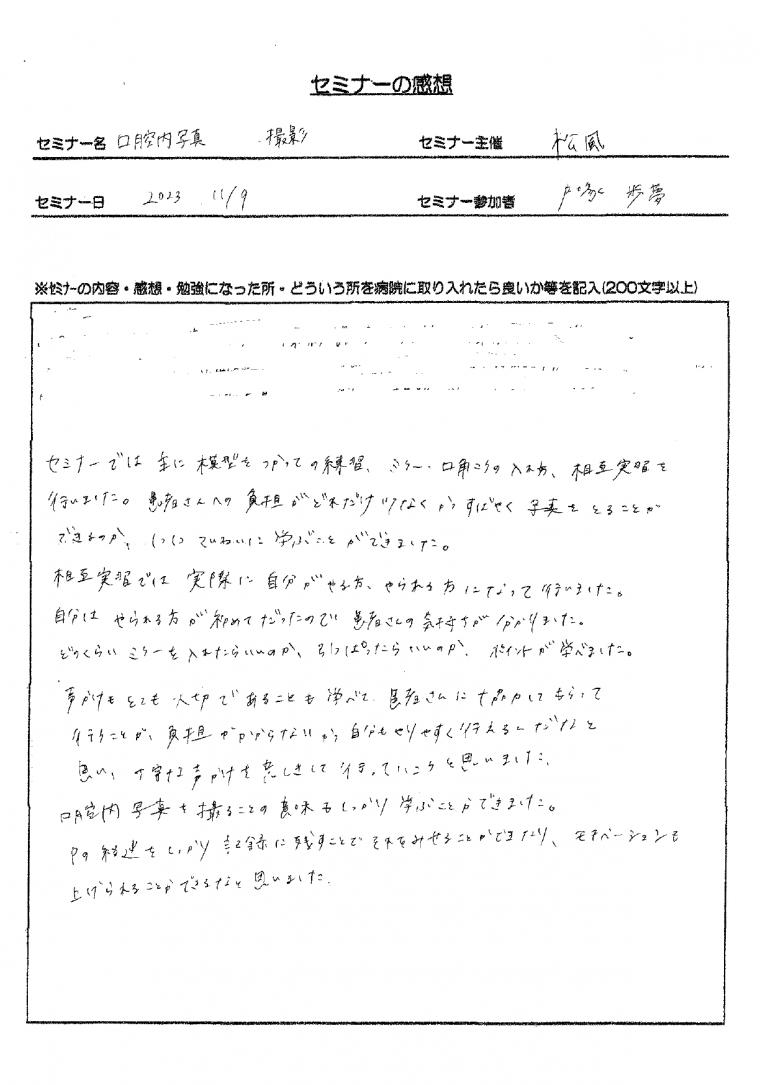 セミナーの感想
セミナー名 口腔内写真 撮影 セミナー主催 松風
セミナー日 2023 11/9 セミナー参加者 戸塚 歩夢
※セミナーの内容・感想・勉強になった所・どういう所を病院に取り入れたら良いか等を記入(200文字以上)
セミナーでは主に模型をつかっての練習、ミラー・口角こうの入れ方、相互実習を
行いました。患者さんへの負担がどれだけ少なくかつすばやく写真をとることが
できるのか、 ていねいに学ぶことができました。
相互実習では実際に自分がやる方、やられる方になって行いました。
自分はやられる方が初めてだったので患者さんの気持ちが分かりました。
どのくらいミラーを入れたらいいのか、引っぱったらいいのか、ポイントが学べました。
声かけもとても大切であることも学べて、患者さんに協力してもらって
行うことが、負担がかからないかつ自分もやりやすく行えるんだなと
思い、丁寧な声かけを意しきして行っていこうと思いました。
口腔内写真を撮ることの意味もしっかり学ぶことができました。
Pの経過をしっかり記録に残すことでそれをみせることができたり、モチベーションも
上げられることができるなと思いました。